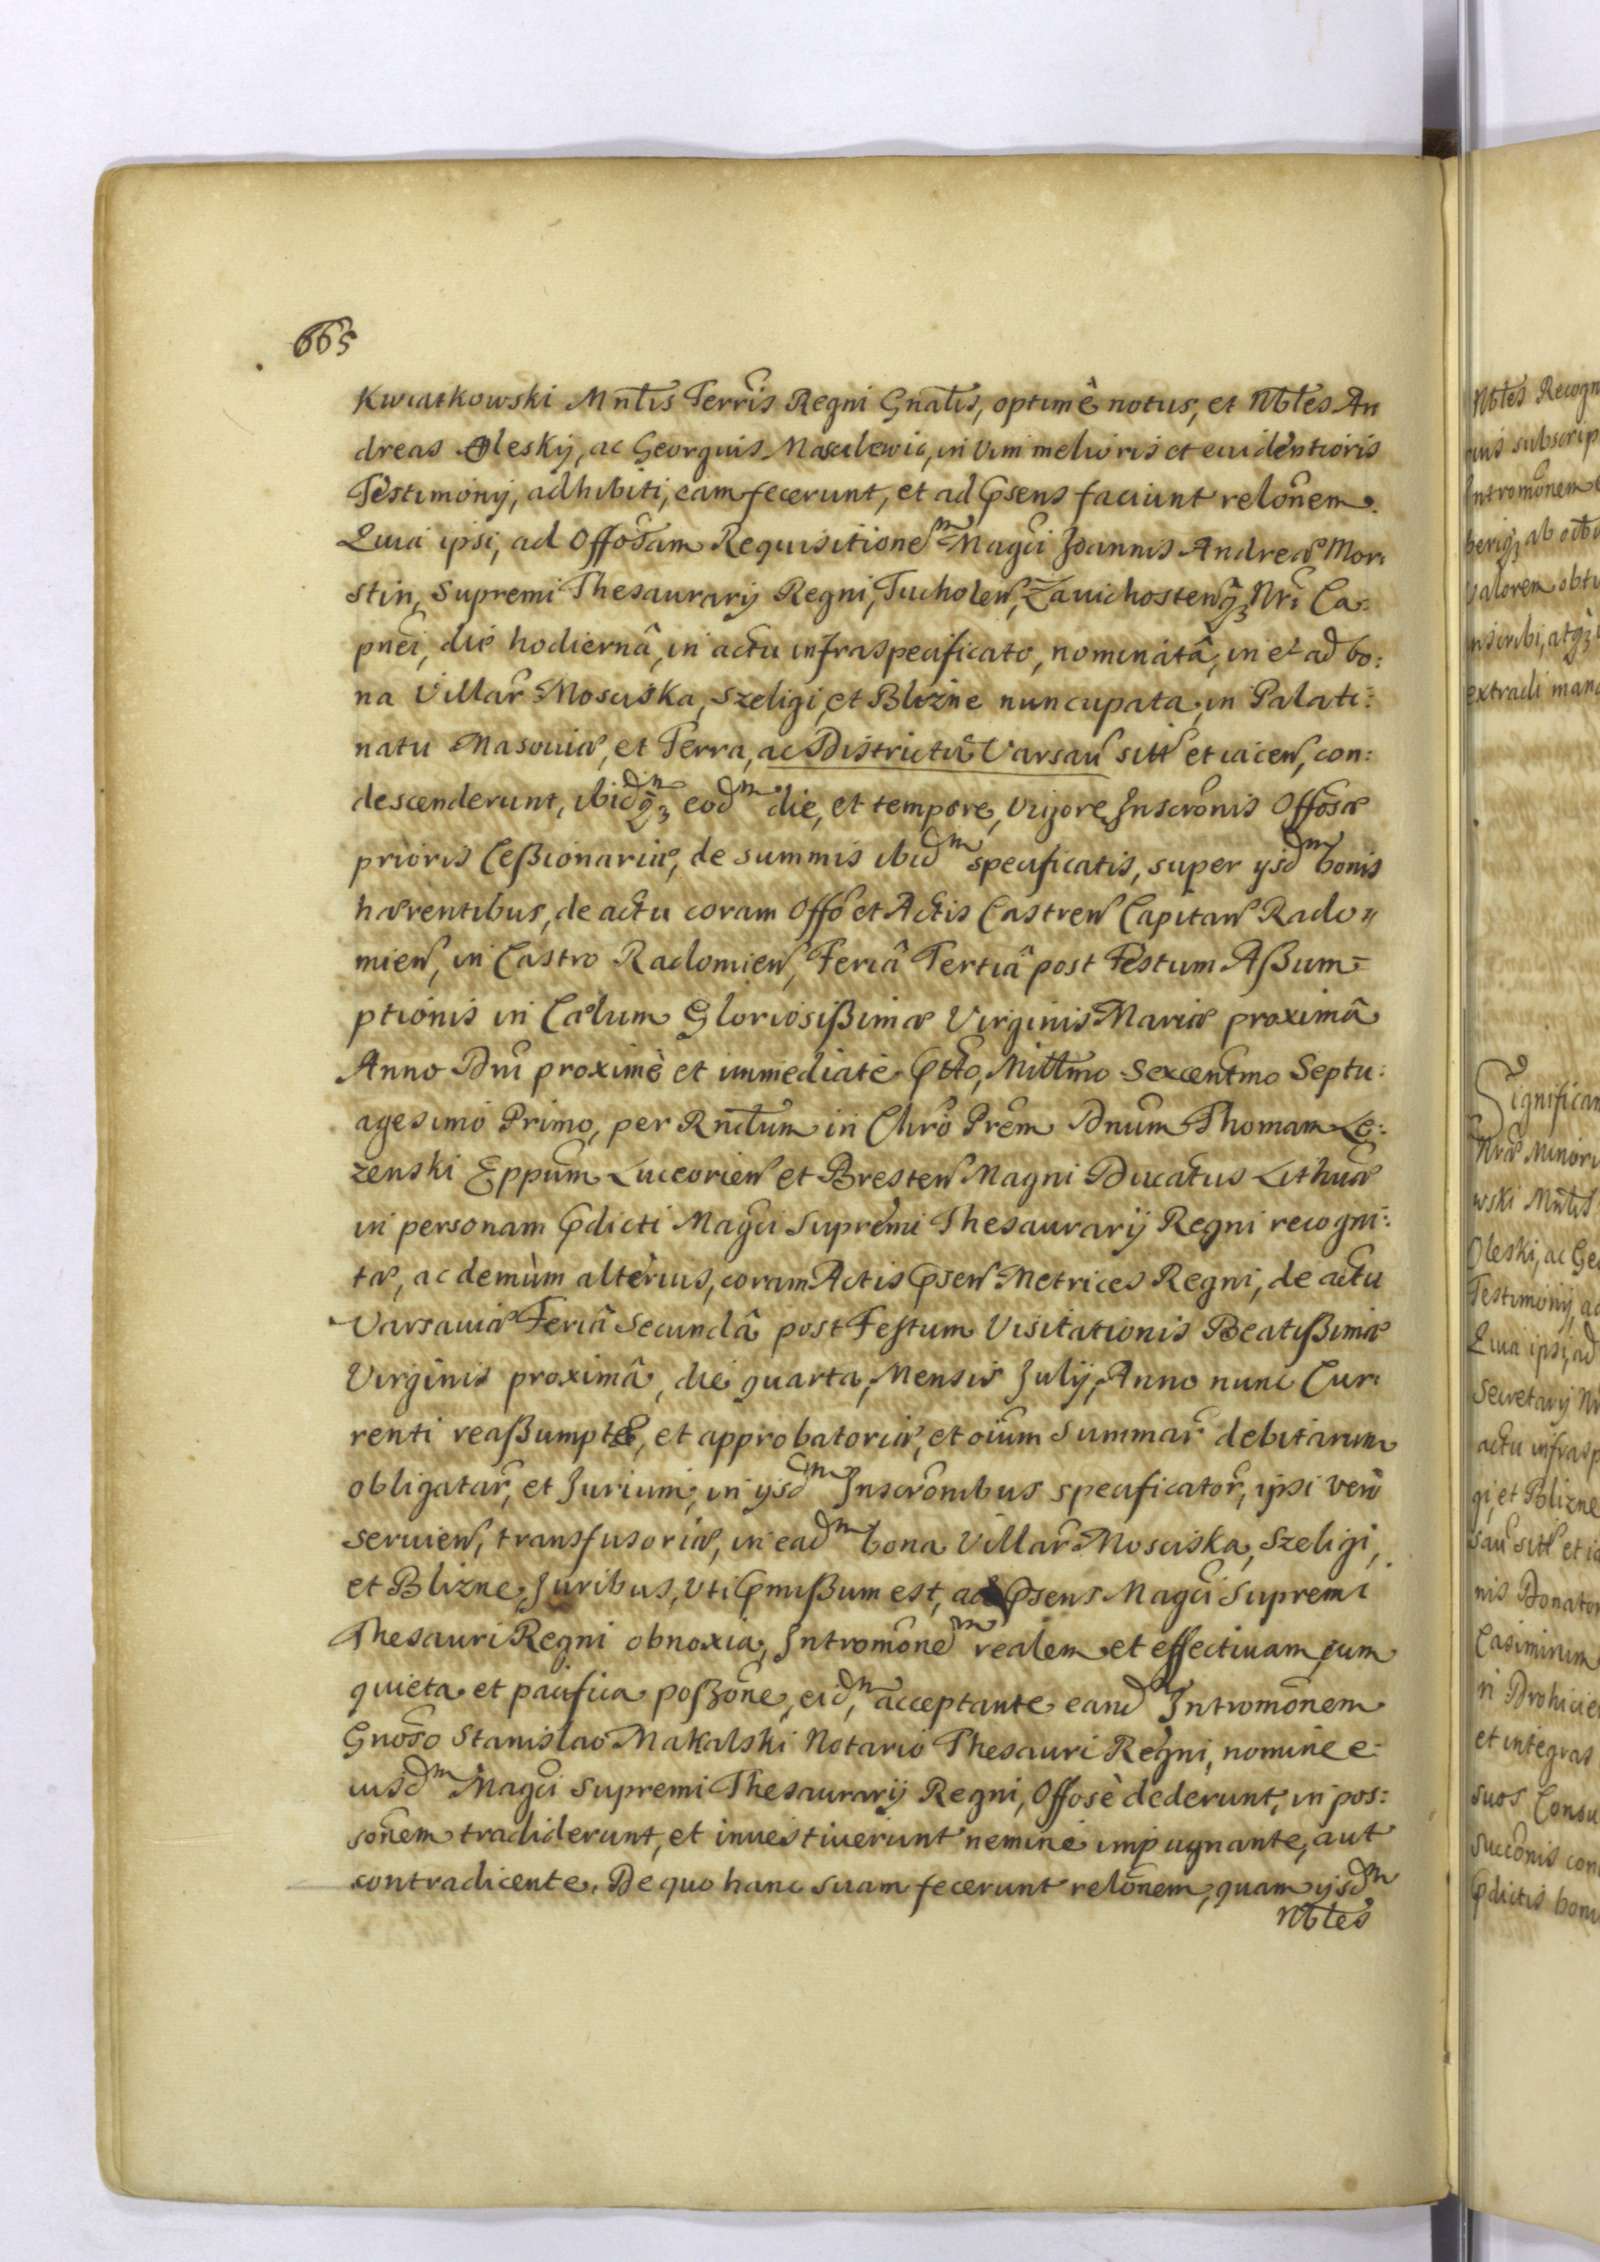 665
Kwiatkowski Mnlis Terris Regni Gnalis, optimè notus, et Nbles An
dreas Oleskij, ac Georguis Masulewic, in vim melioris et euidentioris
Testimonij, adhibiti, eam fecerunt, et ad Psens faciunt relonem.
Quia ipsi, ad Offosam Requisitionem Magci Joannis Andreæ Mor:
stin, Supremi Thesaurarij Regni, Tucholen, Zauichostenq3 Nri Ca:
pnei, die hodiernâ, in actu infraspecificato, nominatâ, in et ad bo:
na Villar Mosciska, Szeligi, et Blizne nuncupata, in Palati:
natu Masouiæ, et Terra, ac Districtu Varsau sitt et iacen, con:
descenderunt, ibidmq3 eodm die, et tempore, vigore Inscronis Offosæ
prioris Ceßionariæ, de summis ibidm specificatis, super ijsdm bonis
hærentibus, de actu coram Offo et Actis Castren Capitan Rado"
mien, in Castro Radomien, Feriâ Tertiâ post Festum Aßum=
ptionis in Cælum Gloriosißimæ Virginis Mariæ proximâ
Anno Dni proximè et immediatè Ptto, Millmo Sexcentmo Septu:
agesimo Primo, per Rndum in Chro Prem Dnum Thomam Le:
zenski Eppum Luceorien et Bresten Magni Ducatus Lithuæ
in personam Pdicti Magci Supremi Thesaurarij Regni recogni:
tæ, ac demùm alterius, coram Actis Psen Metrices Regni, de actu
Varsauiæ Feriâ Secundâ post Festum Visitationis Beatißimæ
Virginis proximâ, die quarta, Mensis Julij, Anno nunc Cur:
renti reaßumptæ, et approbatoriæ, et oium Summar debitarum
obligatar, et Jurium, in ijsdm Inscronibus specificator, ipsi vero
seruien, transfusoriæ, in eadm bona Villar Mosciska, Szeligi,
et Blizne, Juribus, vti Pmißum est, ad Psens Magci Supremi
Thesauri Regni obnoxia, Intromonem realem et effectiuam, cum
quieta et pacifica poßone, eidm, acceptante eandm Intromonem
Gnoso Stanislao Makalski Notario Thesauri Regni, nomine e:
iusdm Magci Supremi Thesaurarij Regni, Offosè dederunt, in pos:
sonem tradiderunt, et inuestiuerunt nemine impugnante, aut
contradicente. De quo hanc suam fecerunt relonem, quam ijsdm
Nbles
Nbles Recogn
ruis subscrip
Intromonem
berig3 ab oib
valorem obtu
nscribi, atq3
extradi mand
Significam
Nræ Minori
wski Mnlis
Oleski, ac Ge
Testimonij, ad
Quia ipsi, ad
Secretarij Nr
actu infrasp
gi, et Blizne
sau sitt et ia
nis Donator
Casimirum
in Drohicie
et integras
suos Consu
succonis con
Pdictis bonis